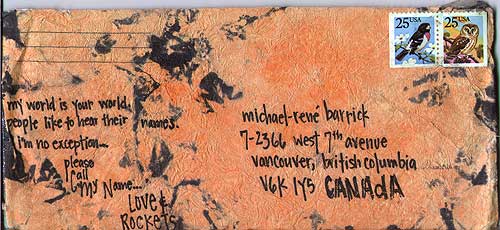 25 USA
25 USA
my world is your world.
people like to hear their names.
i'm no exception...
please
call
my Name...
Love &
Rockets
michael-rené barrick
7-2366 west 7th avenue
vancouver, british columbia
V6K 1Y5 CANAdA